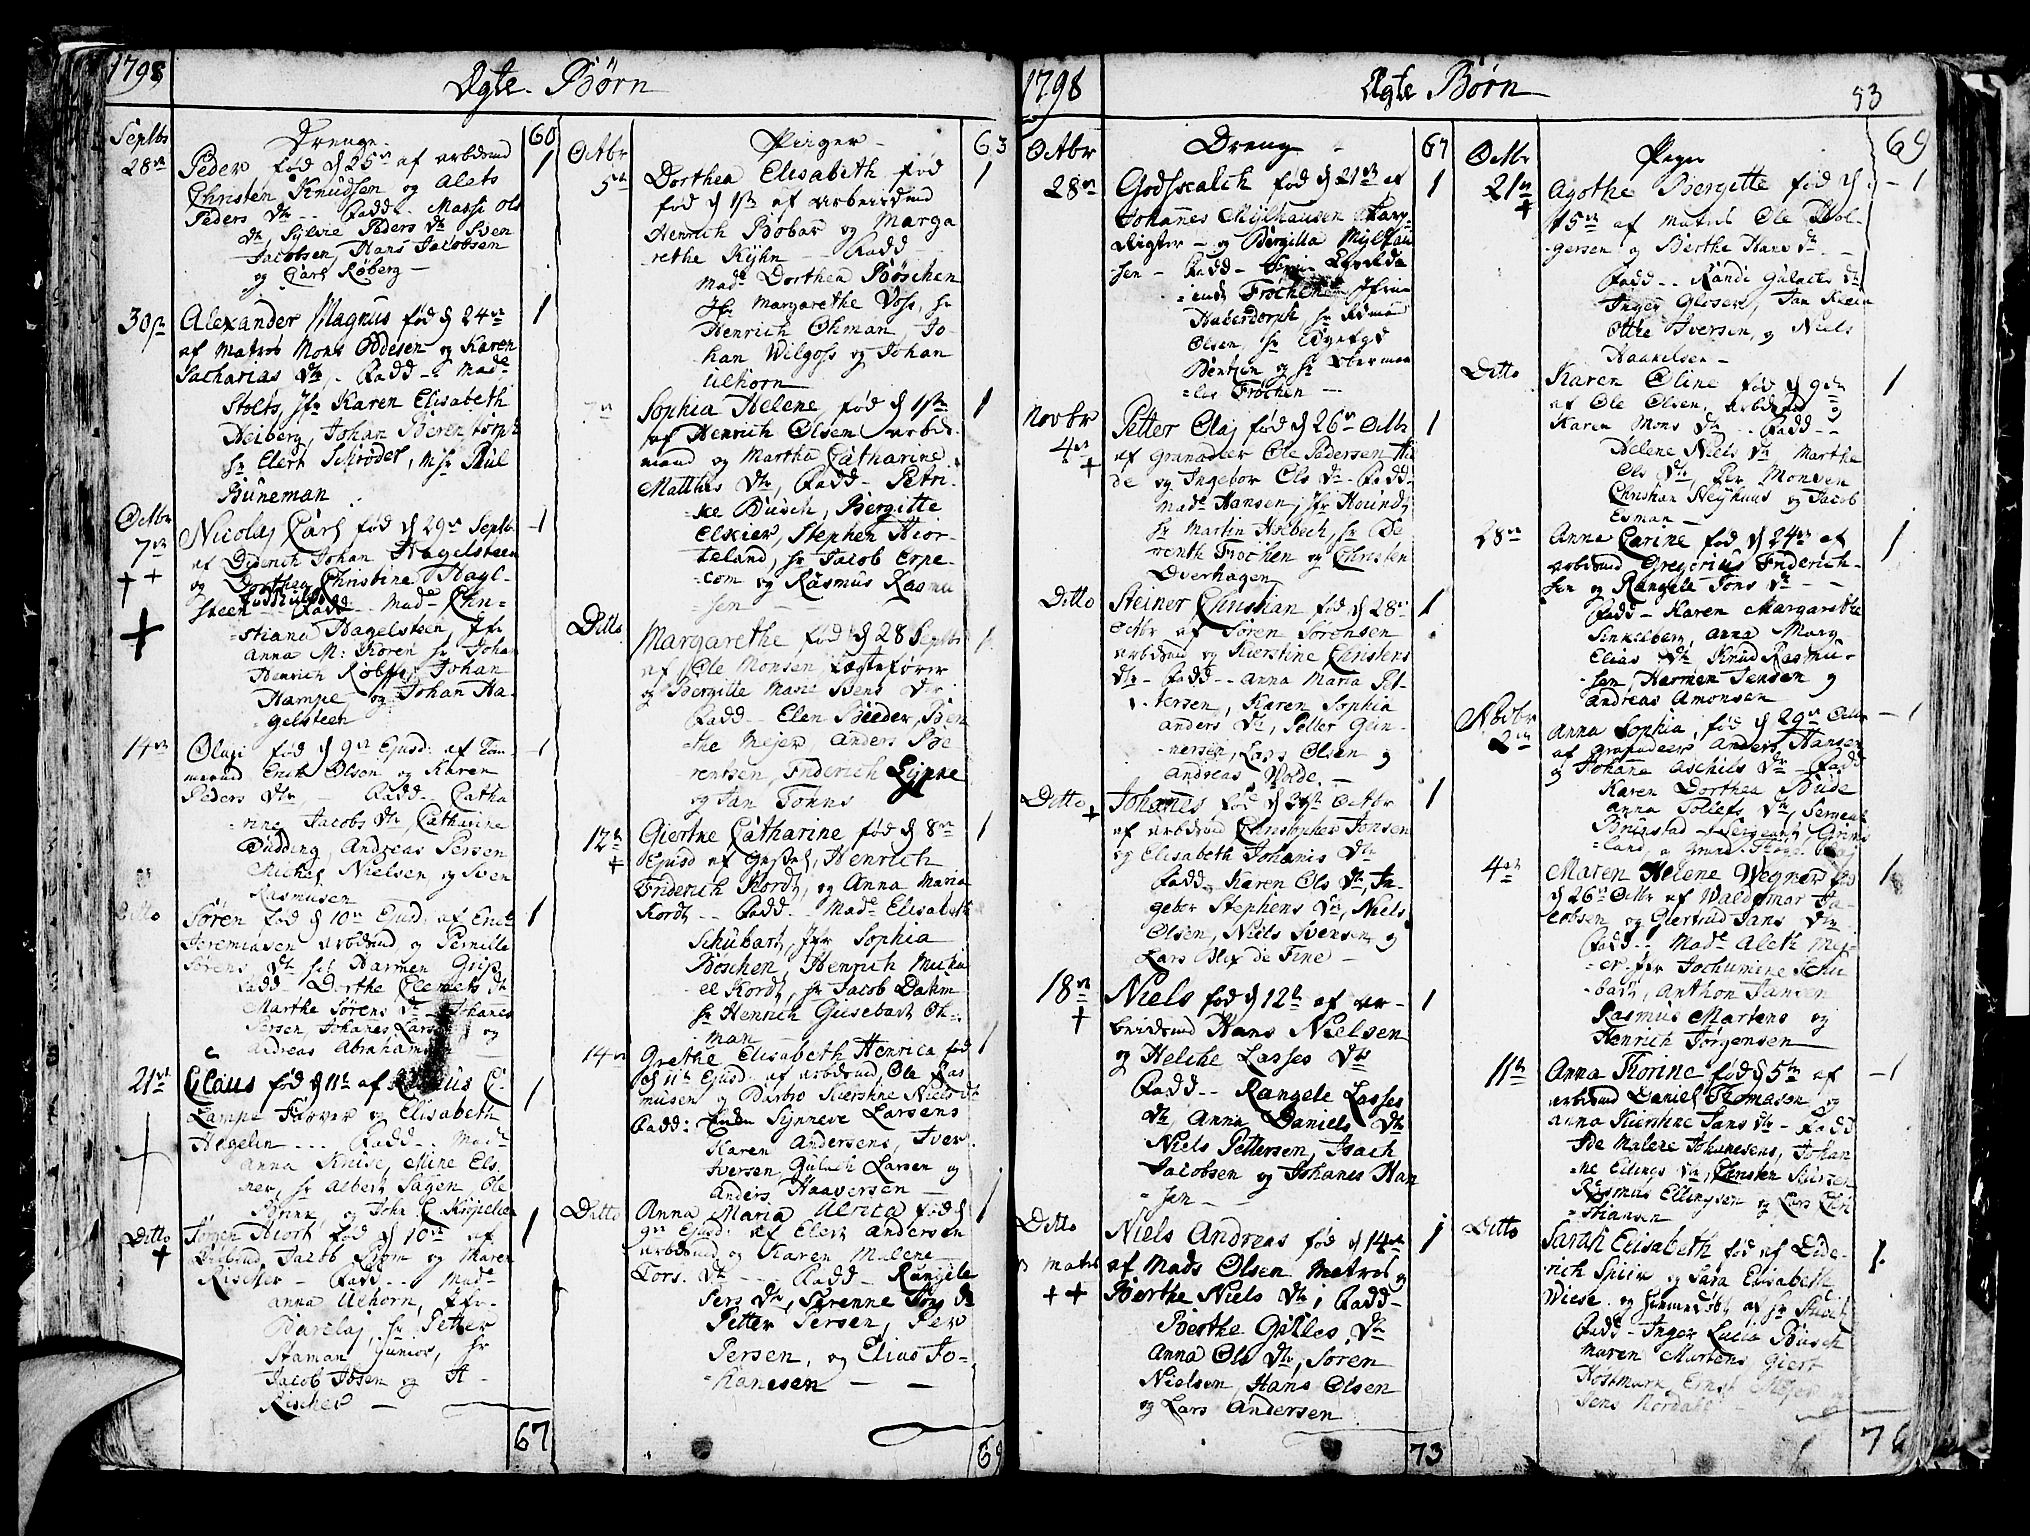 1798
Ægte Børn
Septbr
Drenge
60
28de
Peder fød d 25de af arbdsmd
1
Christen Knudsen og Alets
Peders Dtr -- Fadd -- Massi Ols
Dtr, Sylvie Peders Dtr Sven
Jacobsen, Hans Jacobsen
og Carl Røberg -
30te
Alexander Magnus fød d 24de
1
af Matros Mons Odesen og Karen
Sacharias Dtr - Fadd - Made
Stolts, Jfr Karen Elisabeth
Heiberg, Johan Berenstorph
Hr Elert Schrøder, Mr Paul
Büneman
Octbr
7de
Nicolaj Carl fød d 29de Septbr
1
af Diderich Johan Hagelsteen
og Dorthea Christine Hagl-
steen Fadd -- Made Chri-
stiana Hagelsteen, Jfr
Anna M: Koren Hr Johan
Henrich Rolffs, Johan
Hampe og Johan Ha-
gelsteen
14de
Olagi fød d 9de Ejusd: af Tøm
1
mermd Erich Olsen og Karen
Peders Dtr, - Fadd - Catha
rine Jacobs Dtr, Catharine
Dudding, Andreas Persen
Michel Nielsen og Sven
Rasmusen
Ditto
Søren fød d 10de Ejusd. af Erich
1
Jeremiasen arbdsmd og Pernille
Sørens Dtr hos Harmen Grip
Fadd - Dorthe Clemets Dtr
Marthe Sørens Dtr Johanes
Persen Johanes Larsen og
Andreas Abrahamsen
21de
Claus fød d 11te af C.
1
Lampe Farver og Elisabeth
Hegelin --- Fadd -- Made
Anna Kruse, Mine Els
ner, Hr Albert Sagen, Ole
Brinx og John C Krøpelien
Ditto
Jørgen Hiort fød d 10de af
1
arbdsmd Jacob Brøm og Maren
Rischer - Fadd -- Made
Anna Ulhorn, Jfr
Barclaj, Hr Petter
Staman Junior, Hr
Jacob Ibsen og H
Rischer -
67
Octbr
Piiger
63
5te
Dorthea Elisabeth fød
1
fød d 1ste af arbeidsmd
Henrich Bøbar og Marga
rethe Kyhn -- Fadd
Made Dorthea Bøschen
Jfr Margarethe Voss, Hr
Henrich Ohman, Jo-
han Wilgoss og Johan
Ulhorn
7de
Sophia Helene, fød d 1ste
1
af Henrich Olsen arbds-
mand og Martha Catharine
Matthis Dtr, Fadd - Petri-
ke Busch, Bergitte
Elxier, Stephen Hior-
teland, Hr Jacob Erpe-
com og Rasmus Rasmu
sen
Ditto
Margarethe fød d 28 Septbr
1
af Ole Monsen Lægtefører
og Bergitte Marie Svens Dtr
Fadd - Elen Bieder, Ben
the Mejer, Anders Be
rentsen, Friderich Lynne
og Jan Tønns
12te
Giertrue Catharine fød d 8de
1
Ejusd af Henrich
Friderich Kordt, og Anna Maria
Kordt -- Fadd -- Made Elisabeth
Schubart, Jfr Sophia
Bøschen, Henrich Micha
el Kordt, Hr Jacob Dahm
Hr Henrich Gusebart Oh-
man
14de
Grethe Elisabeth Henrica fød
1
d 11te Ejusd. af arbdsmd Ole Ras
musen og Barbro Kierstine Niels Dtr
Fadd: Synneve Larsens
Karen Andersens, Iver
Iversen, Gulach Larsen og
Anders Haaversen
Ditto
Anna Maria Ulrica fød d
1
9de Ejusd: af Elert Andersen
arbdsmd og Karen Malene
Tors Dtr -- Fadd - Rangele
Pers Dtr, Sørenne Dtr
Petter Persen, Per
Persen, og Elias Jo-
hanesen --
69
1798
Ægte Børn
53
Octbr
Dreng
67
28de
Godskalch fød d 21de af
1
Johannes Mylhausen
og Birgitta Mylhau
sen - Fadd -
Frøchen Jfr
Haberdorph, Hr
Olsen, Hr
Bentzen og Hr Eberman
les Frøchen -
Novbr
4de
Petter Olaj fød d 26de Octbr
1
af Granadeer Ole Pedersen
de og Ingebor Ols Dtr Fadd
Made Hansen, Jfr Hound
Hr Martin Holbech, Hr Be
renth Frøchen og Christen
Overhagen
Ditto
Steiner Christian fød d 28de
1
Octbr af Søren Sørensen
arbdsmd og Kierstine Christens
Dtr - Fadd -- Anna Maria Pet-
tersen, Karen Sophia
Anders Dtr, Petter Gun-
nersen, Lars Olsen og
Andreas Volde -
Ditto
Johanes fød d 31te Octbr
1
af arbdsmd Christopher Jonsen
og Elisabeth Johanis Dtr
Fadd Karen Ols Dtr, In-
gebor Stephens Dtr, Niels
Olsen, Niels Svensen og
Lars Olef de Fine -
18de
Niels fød d 12te af ar-
1
beidsmd Hans Nielsen
og Helche Lasses Dtr
Fadd -- Rangele Lasses
Dtr, Anna Daniels Dtr
Niels Pettersen, Isach
Jacobsen og Johanes Han
sen -
Ditto
Niels Andreas fød d 14de
1
af Mads Olsen Matros og
Berthe Niels Dtr, Fadd-
Berthe Gitles Dtr
Anna Ols Dtr, Søren
Nielsen, Hans Olsen
og Lars Andersen
73
Octbr
Piger
69
21de
Agothe Bergitte fød d
1
15de af Matros Ole Hol-
gersen og Berthe Hans Dtr
Fadd -- Randi Gulachs Dtr
Inger Jan
Otthe Iversen, og Niels
Haakelsen -
Ditto
Karen Oline fød d 9de
1
af Ole Olsen arbdsmd og
Karen Mons Dtr -- Fadd --
Helene Niels Dtr, Marthe
Ols Dtr, Per Monsen
Christian Neyhuus og Jacob
Esman -
28de
Anna Carine fød d 24de af
1
arbdsmd Gregorius Friderich-
sen og Rangele Tons Dtr --
Fadd - Karen Margarethe
Sinkelberg, Anna Marg
Elias Dtr, Knud Rasmu-
sen, Harmen Jensen og
Andreas Amonsen
Novbr
2de
Anna Sophia, fød d 29de Octbr
1
af Granadeer Anders Hansen
og Johane Aschils Dtr - Fadd
Karen Dorthea Bude
Anna Tollefs Dtr, Sergeant
Brunstad - Sergeant Grims
land og
4de
Maren Helene Wegner fød
1
d 26de Octbr af Waldemar Ja-
cobsen og Giertrud Jans Dtr
Fadd -- Made Aleth Mey-
er, Jfr Jochumine Schu
bart, Anthon Jansen
Rasmus Martens og
Henrich Jørgensen
11te
Anna Florine fød d 5te af
1
arbdsmd Daniel Thomasen og
Anna Kierstine Jans Dtr - Fadd
Ide Malene Johanesens, Johan
ne Ellings Dtr, Christen Siursen
Rasmus Ellingsen og Lars Chri
stiansen
Ditto
Sarah Elisabeth fød af Dide-
1
rich Spiir og Sara Elisabeth
Wiese og af Hr
Fadd - Inger Lucia Busch
Maren Martens Giert
Kostmark, Ernst Mejer og
Jens Nordahl -
76